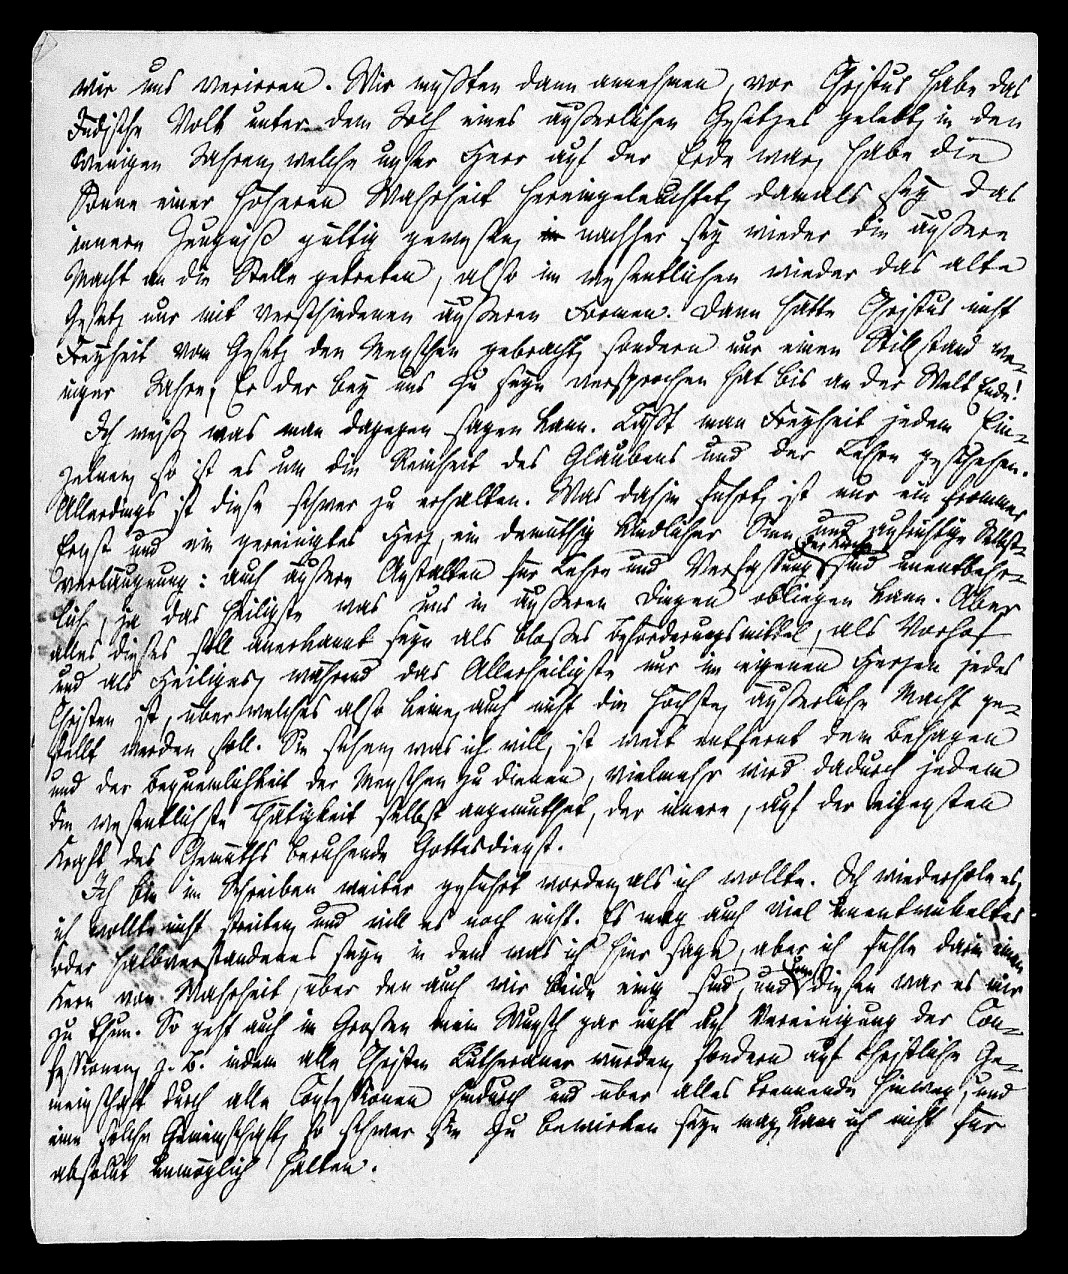 wir uns verirren. Wir müßten dann annehmen, vor Christus habe das
Jüdische Volk unter dem Joch eines äußerlichen Gesetzes gelebt, in den
wenigen Jahren, welche unser Herr auf der Erde war, habe die
Sonne einer höheren Wahrheit hereingeleuchtet, damals sey das
innere Zeugniß gültig gewesen, nachher sey wieder die äußere
Macht an die Stelle getreten, also im wesentlichen wieder das alte
Gesetz nur mit verschiedenen äußeren Formen. Dann hätte Christus nicht
Freyheit vom Gesetz den Menschen gebracht, sondern nur einen Stillstand we-
niger Jahre; Er der bey uns zu seyn versprochen hat bis an der Welt Ende!
Ich weiß, was man dagegen sagen kann. Läßt man Freyheit jedem Ein-
zelnen, so ist es um die Reinheit des Glaubens und der Lehre geschehen.
Allerdings ist diese schwer zu erhalten. Was dahin führt, ist nur ein frommer
Ernst und ein gereinigtes Herz, ein demüthig kindlicher Sinn und aufrichtige Selbst-
verläugnung: auch äußere Anstalten für Lehre und Verfassung sind unentbehr-
lich, ja das Heiligste was uns in äußeren Dingen obliegen kann. Aber
alles dieses soll anerkannt seyn als bloßes Beförderungsmittel, als Vorhof
und als Heiliges, während das Allerheiligste nur im eigenen Herzen jedes
Christen ist, über welches also keine, auch nicht die höchste, äußerliche Macht ge-
stellt werden soll. Sie sehen, was ich will, ist weit entfernt dem Behagen
und der Bequemlichkeit der Menschen zu dienen, vielmehr wird dadurch jedem
die wesentlichste Thätigkeit selbst angemuthet, der innere, auf der eigensten
Kraft des Gemüths beruhende Gottesdienst.
Ich bin im Schreiben weiter geführt worden, als ich wollte. Ich wiederhole es,
ich wollte nicht streiten und will es noch nicht. Es mag auch viel unentwickeltes
oder halbverstandenes seyn in dem was ich hier sage, aber ich fühle darin einen
Kern von Wahrheit, über den auch wir beide einig sind, und um diesen war es mir
zu thun. So geht auch im Großen mein Wunsch gar nicht auf Vereinigung der Con-
fessionen, z. B. indem alle Christen Lutheraner würden, sondern auf christliche Ge-
meinschaft durch alle Confessionen hindurch und über alles trennende hinweg, und
eine solche Gemeinschaft, so schwer sie zu bewirken seyn mag, kann ich nicht für
absolut unmöglich halten.